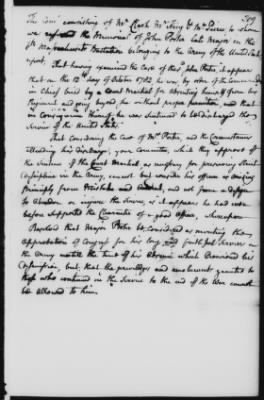 509
The Com. consisting of Mr Clark Mr Mr to whom
was the Memorial of John Porter late Major in the
Massachusetts Battalion belonging to the Army of the United States
report,
That having examined the Case of the said John Porter, it appears
that on the 12th day of October 1782 he was, by order of the Commander
in Chief tried by a Court Martial for absenting himself from his
Regiment and going beyond he without proper permission, and that
in Consequence thereof he was sentenced to be discharged from
Service of the United States,
That Considering the Case of Mr Porter, and the Circumstances
attending his discharge, your Committee, while they approve of
the Sentence of the Court Martial as necessary for preserving Strict
discipline in the Army, cannot but consider his offence as arising
principly from Mistake and and not from a desire
to abandon or injure the Service, as it appears he had
before Supported the Character of a good Officer, Whereupon
Resolved that Major Porter be Considered as meriting the
Approbation of Congress for his long and faithful Services in
the Army until the time of his absence which Occasioned his
but, that the priviledges and emolument granted to
those who continued in the Service to the end of the War cannot
be allowed to him.